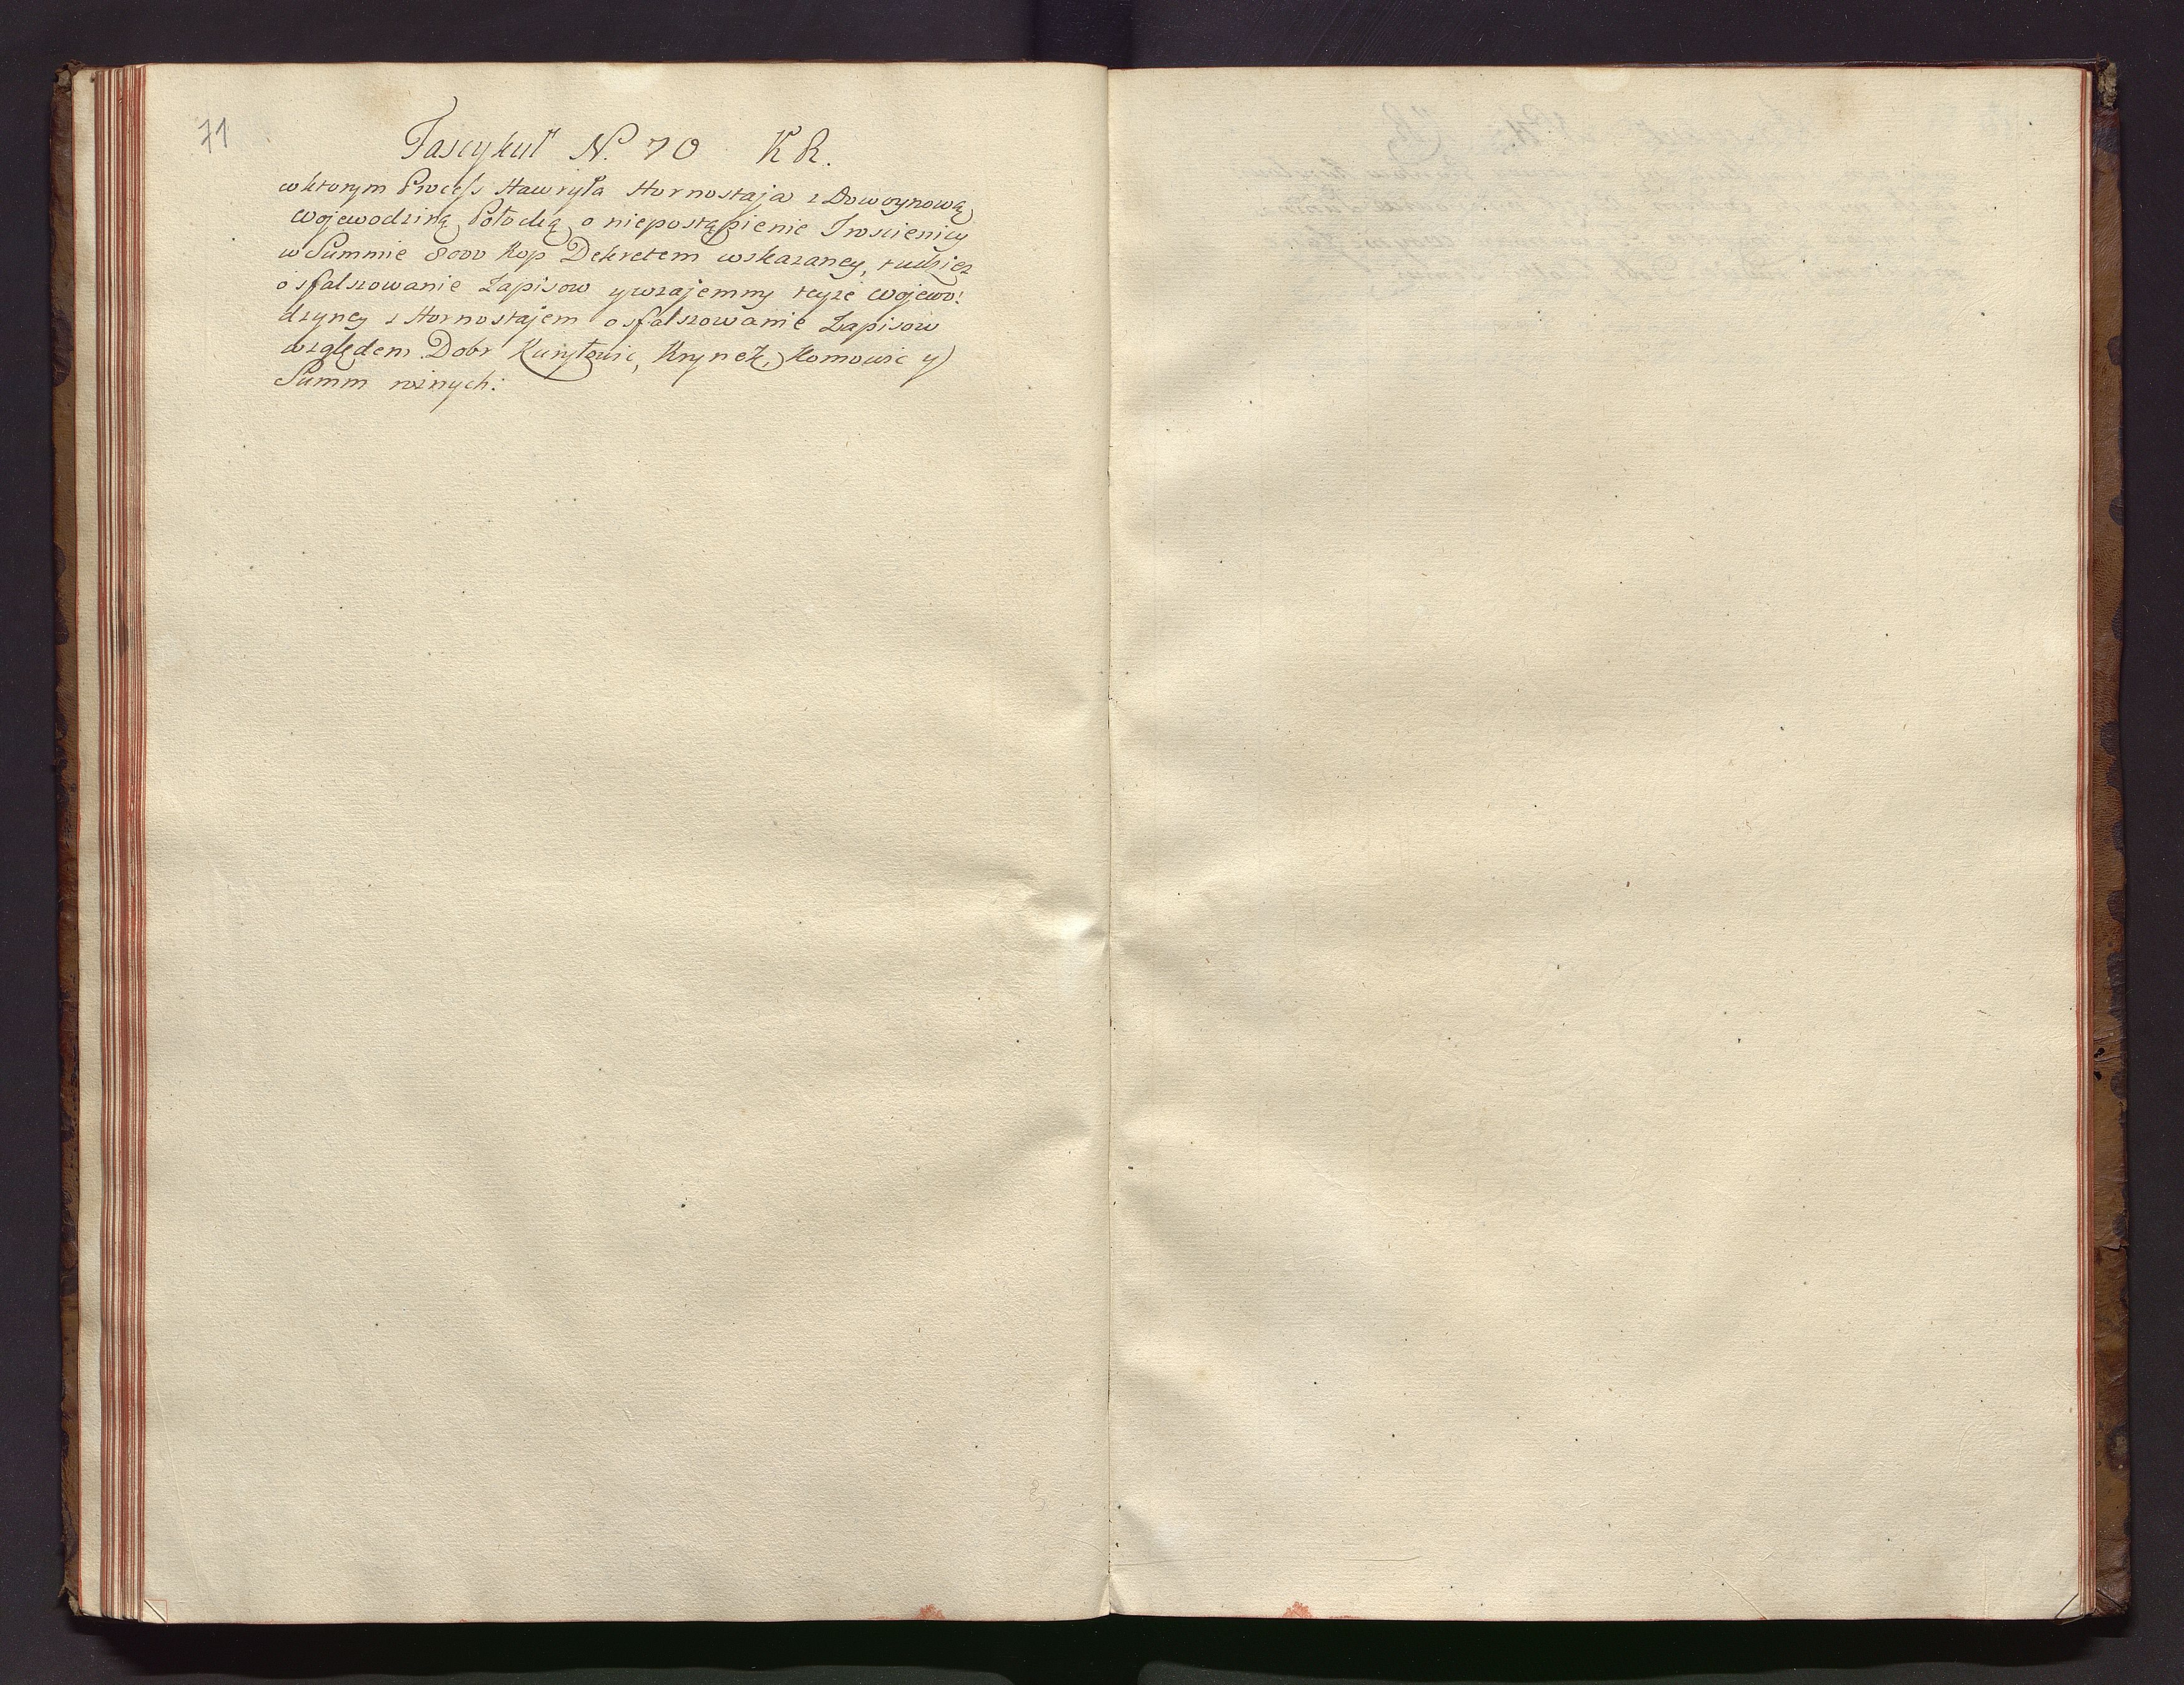 71
Fascykuł N. 70 K R.
w ktorym Process Hawryła Hornostaja z Dowoynową
Wojewodziną Połocką o niepostąpienie Trościenicy
w Summie 8000 Kop Dekretem wskazaney, tudziez
o sfalszowanie Zapisow y wzajemny teyże Wojewo:
dzyney z Hornostajem o sfalszowanie Zapisow
względem Dobr Kuryłowic, Krynek, Homowic y
Summ roznych: